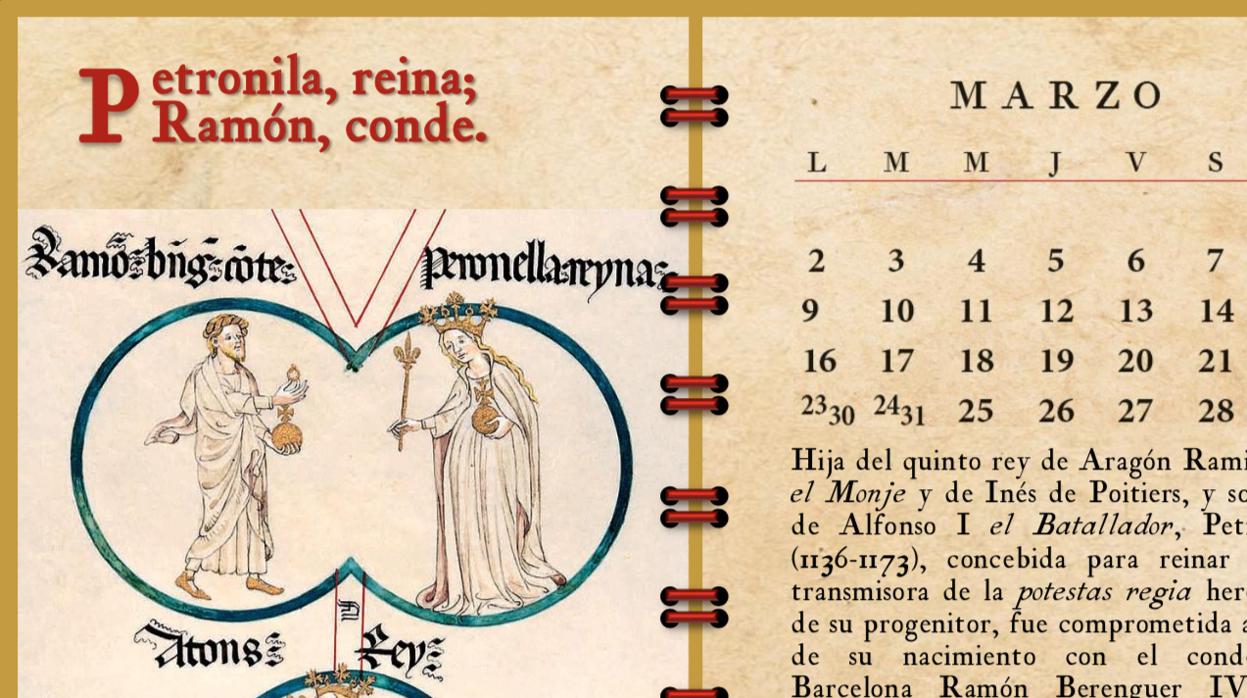 Petronila, reina;
Ramón, conde.
Ramō bñg cōte
peronella reyna
Atons Rey
MARZO
L M M J V S
2 3 4 5 6 7
9 10 11 12 13 14
16 17 18 19 20 21
23 30 24 31 25 26 27 28
Hija del quinto rey de Aragón Rami
el Monje y de Inés de Poitiers, y so
de Alfonso I el Batallador, Pet
(1136-1173), concebida para reinar
transmisora de la potestas regia her
de su progenitor, fue comprometida a
de su nacimiento con el cond
Barcelona Ramón Berenguer IV